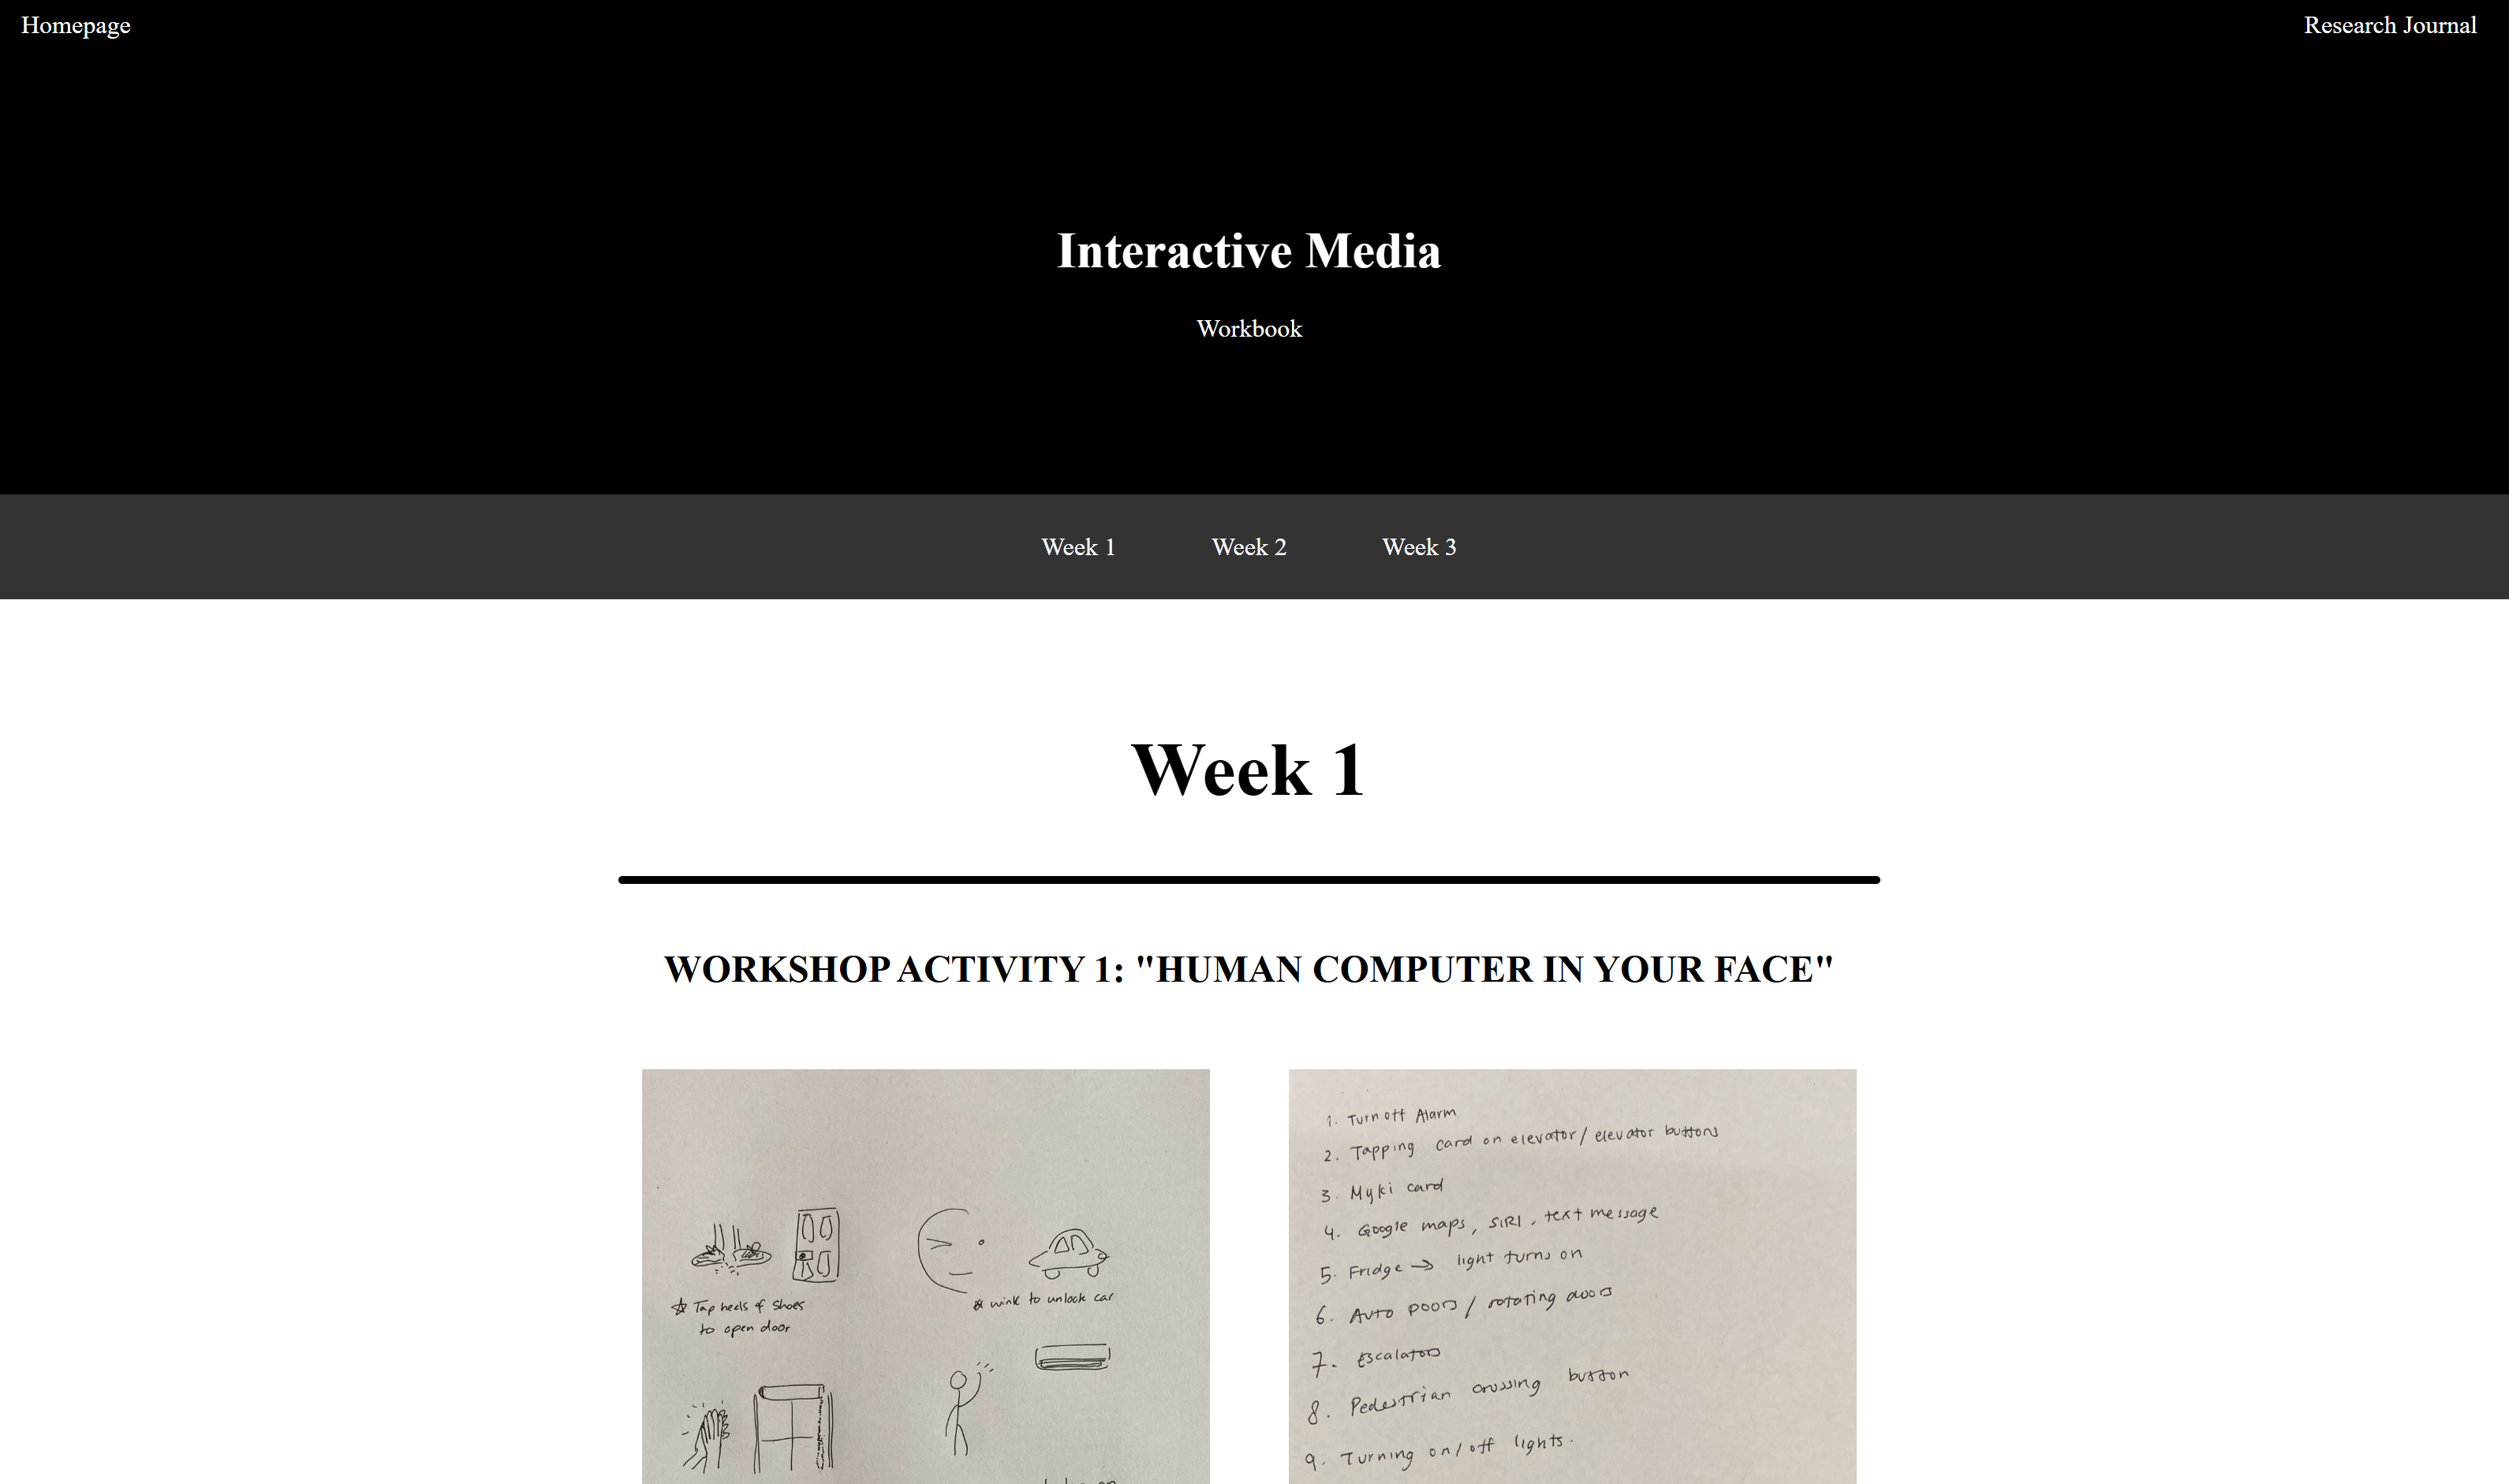 Homepage
Research Journal
Interactive Media
Workbook
Week 1
Week 2
Week 3
Week 1
WORKSHOP ACTIVITY 1: "HUMAN COMPUTER IN YOUR FACE"
Tap heels of shoes
to open door
wink to unlock car
1. Turn off Alarm
2. Tapping card on elevator/ elevator buttons
3. Myki card
4. Google maps, SIRI, text message
5. Fridge → light turns on
6. Auto Doors / rotating doors
7. Escalators
8. Pedestrian crossing button
9. Turning on/off lights.